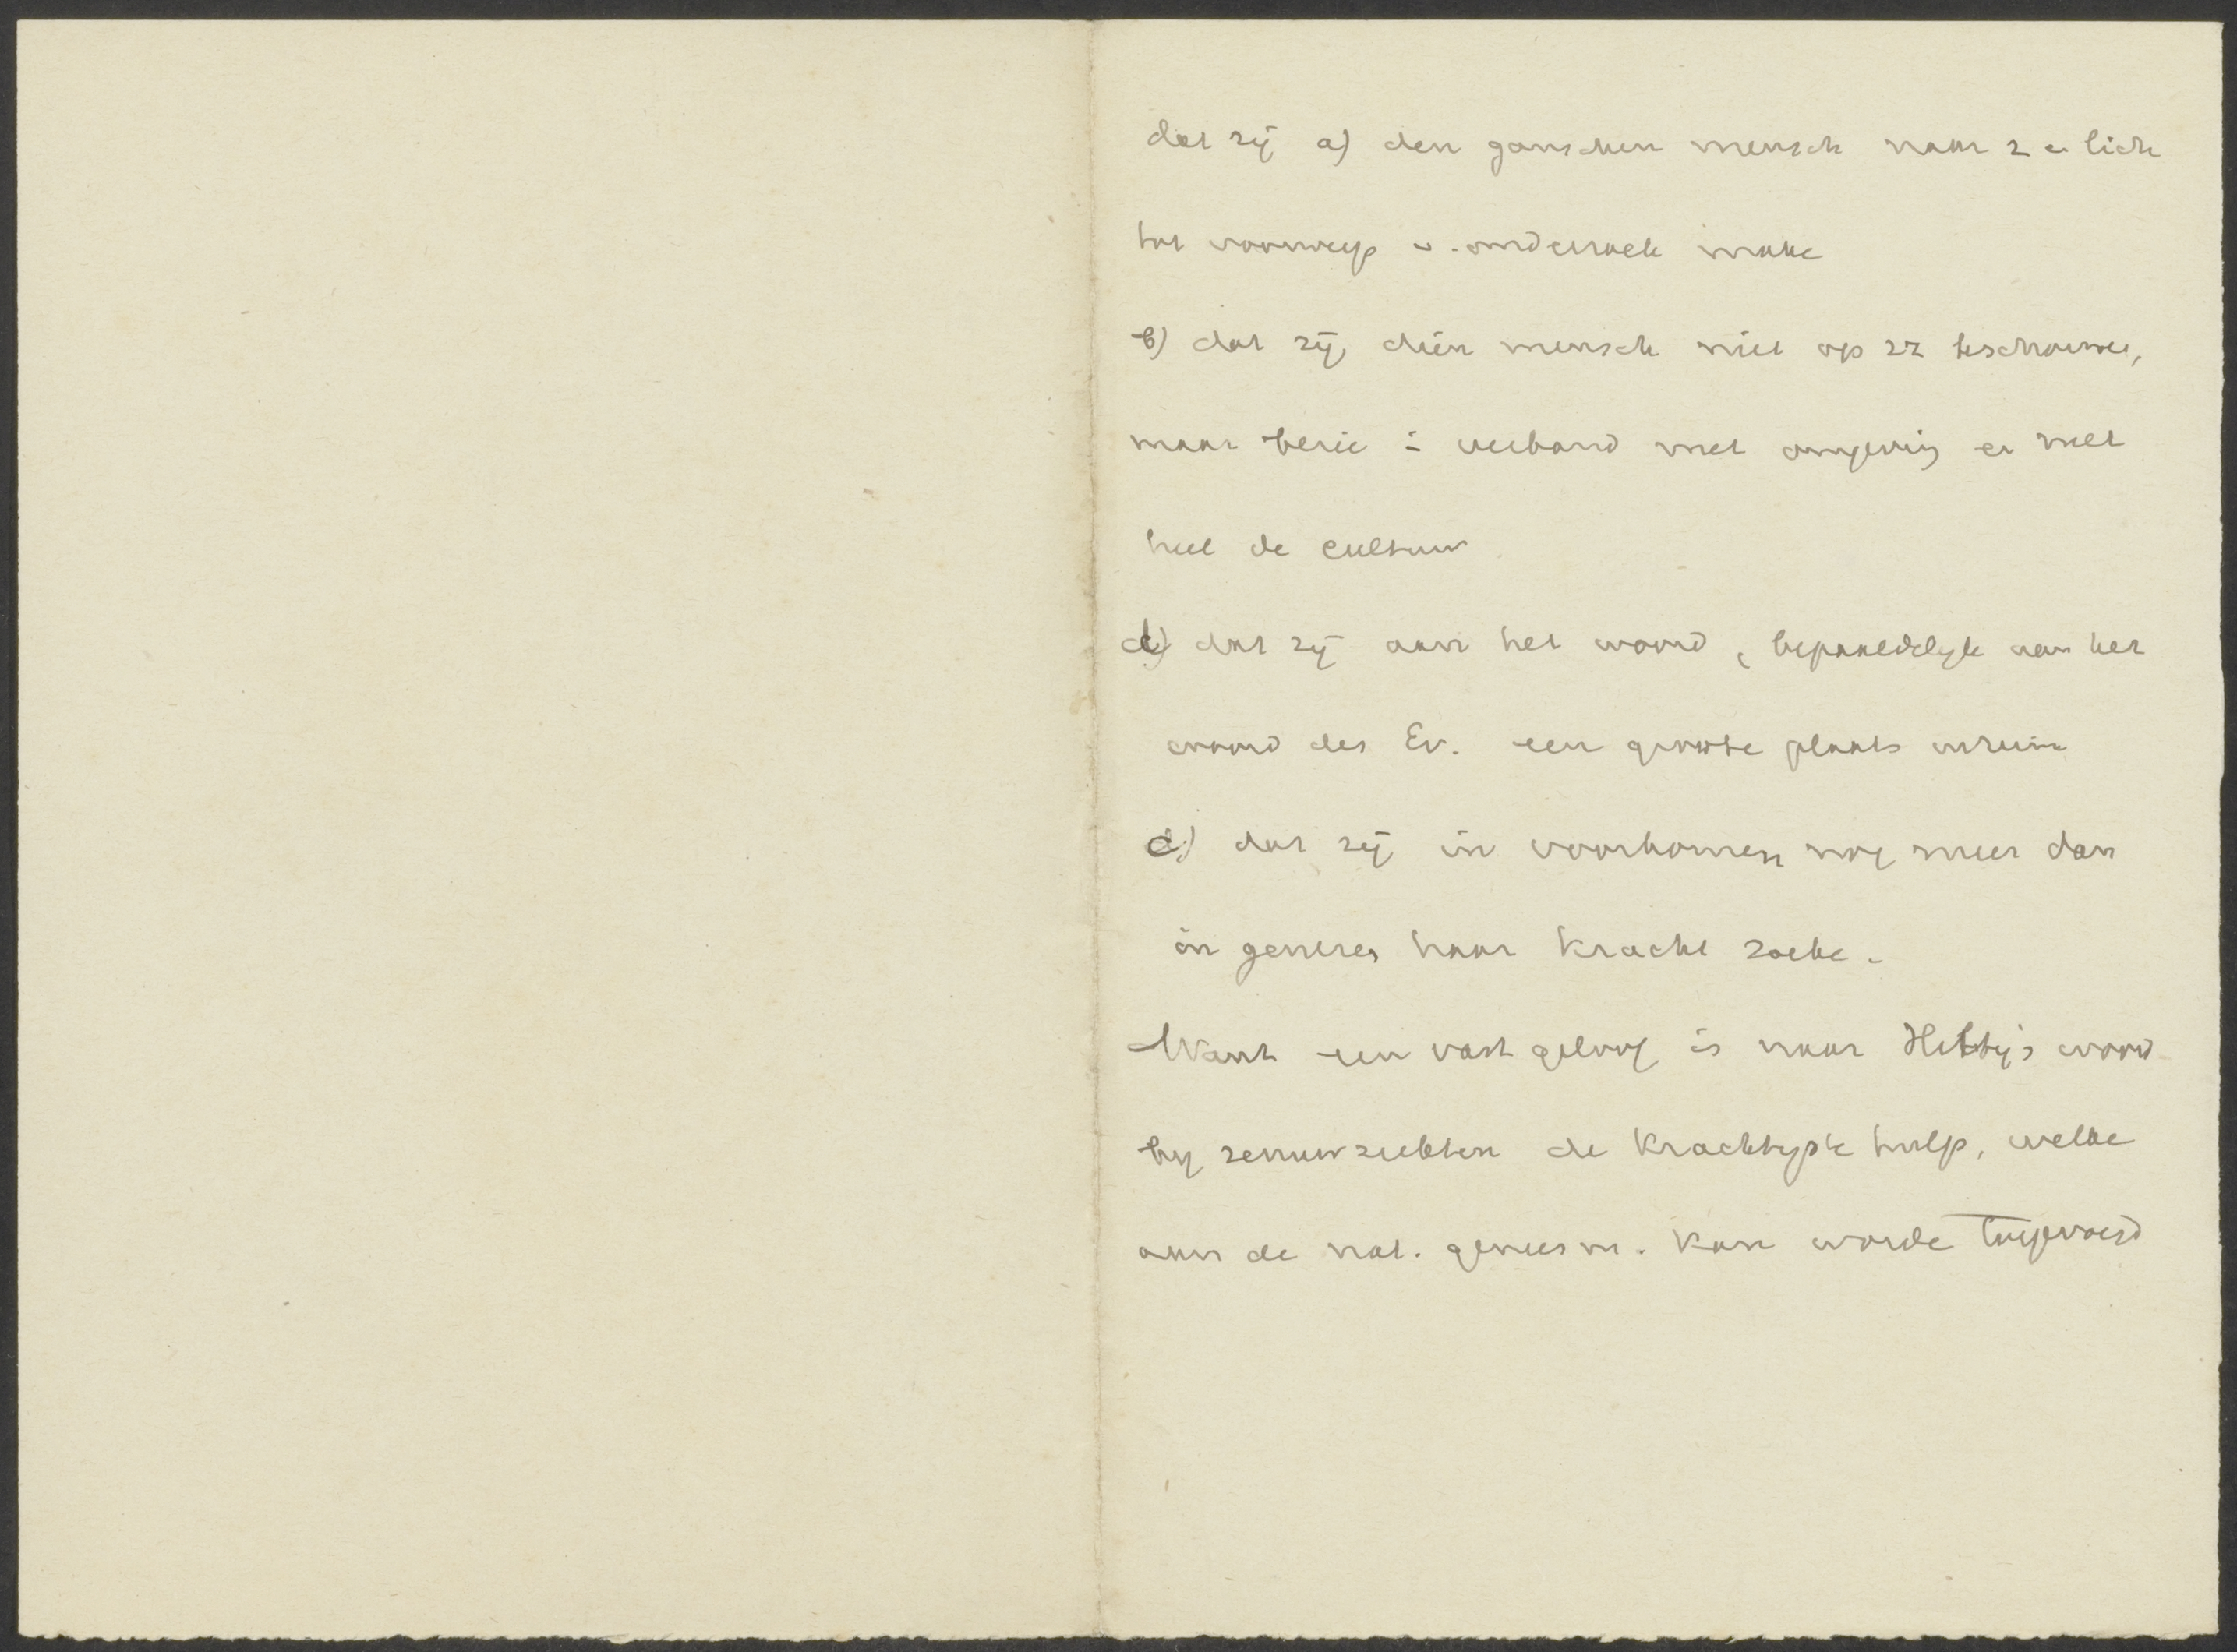 dat zij a) den ganschen mensch naar z en lich
tot voorwerp v. onderzoek make
b) dat zij dien mensch niet op zz beschouwe,
maar bezie i verband met omgeving en met
heel de cultuur
d) dat zij aan het woord, bepaaldelijk aan het
woord des Ev. een groote plaats inruim
c) dat zij in voorkomen nog meer dan
in genezen haar kracht zoeke.
Want een vast geloof is naar Hilty's woord
bij zenuwziekten de krachtigste hulp, welke
aan de nat. geneesm. kan worde toegevoegd